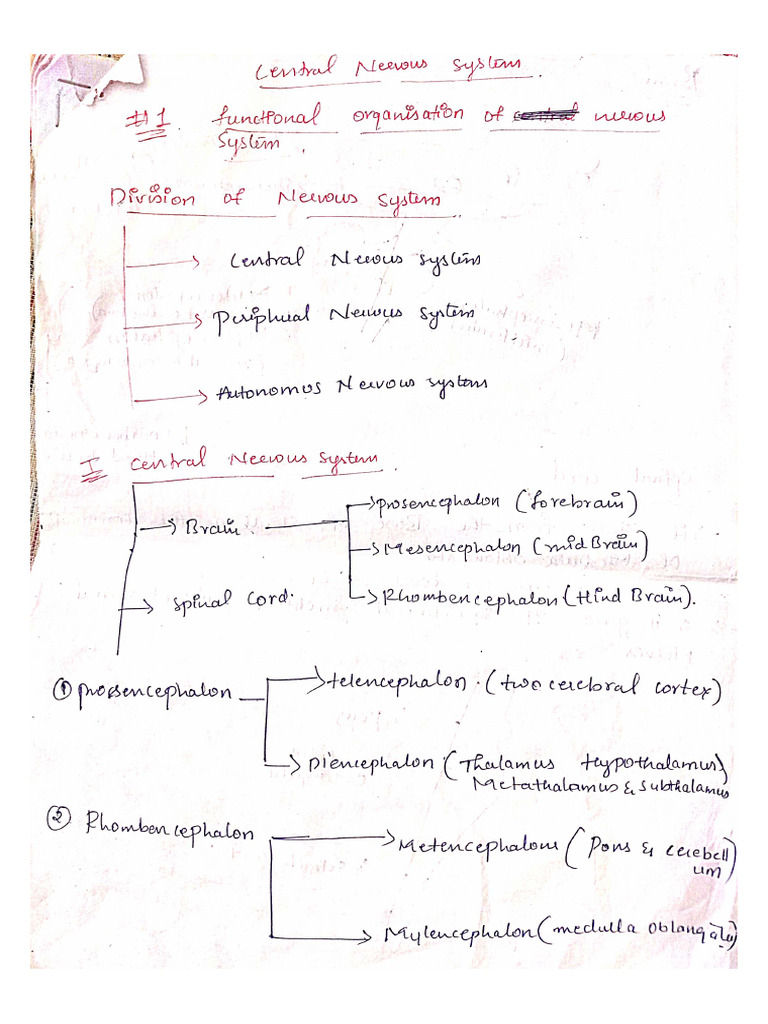 Central Nervous System.
#1. functional organisation of central nervous
System.
Division of Nervous system
Central Nervous system
Peripheral Nervous System
Autonomus Nervous system
I Central Nervous System.
Brain.
prosencephalon (forebrain)
Mesencephalon (mid Brain)
Rhombencephalon (Hind Brain).
Spinal Cord.
① prosencephalon
telencephalon. (two cerebral cortex)
Diencephalon (Thalamus Hypothalamus)
Metathalamus & Subthalamus
② Rhombencephalon
Metencephalons (Pons & cerebell
um)
Mylencephalon (medulla oblangata)